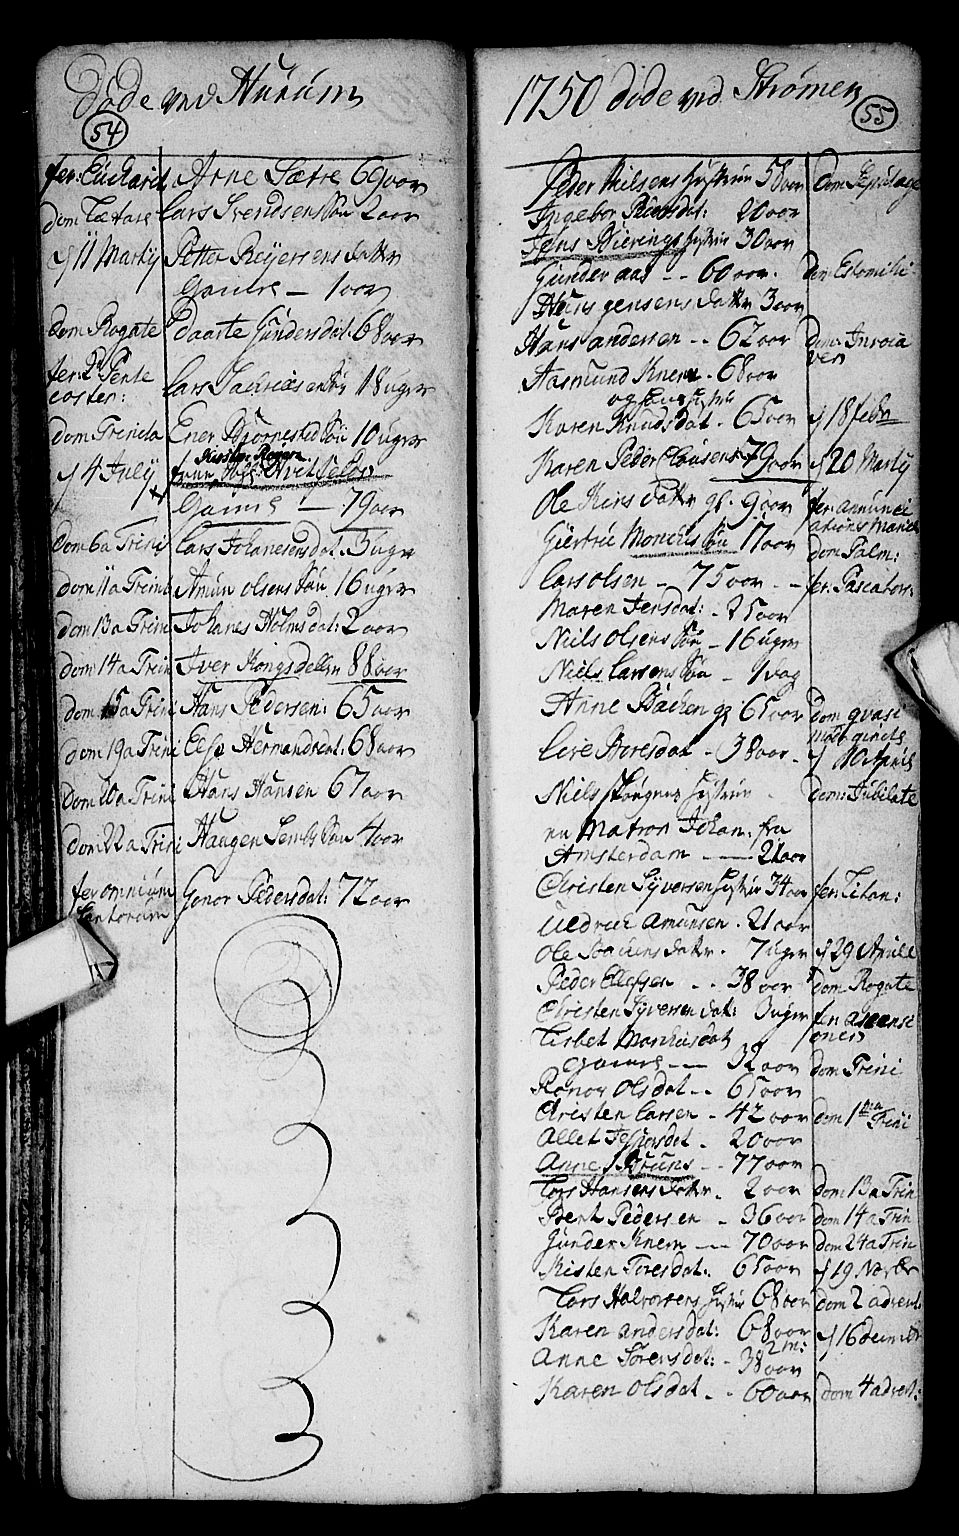 Døde ved Hurum
54
fer: Euchard Arne Sætre 69 aar
dom Lætare Lars Svendsens Søn 2 aar
d 11 Martij Petter Reijersens datter
Gamle — 1 aar
dom Rogate Daarte Gundersdat: 68 aar
fer: 2 Pente
costes: Lars Lauridsens Søn 18 uger
dom Trinita Ener Biørnested Søn 10 uger
Kirstine
d 4 July
Gamle — 79 aar
dom 6 a Trini Lars Johanesens dat. 5 uger
dom 11 a Trinit Amun Olsens Søn 16 uger
dom 13 a Trini Johanes Holms dat: 2 aar
dom 14 a Trini Iver Kongsdellen 88 aar
dom 15 a Trini Hans Pedersen: 65 aar
dom 19 a Trini Else Hermandsdat: 68 aar
dom 20 a Trini Hans Hansen 67 aar
dom 22 a Trini Haagen Sembs Søn 4 aar
fer omnium
Santorum Gonor Pedersdat: 72 aar
1750 døde ved Strømen
55
Peder Nielsens hustrue 58 aar dom Septuage
Ingebor Piersdat: 20 aar
Jens Bierings hustrue 30 aar
Gunder aas - - 60 aar. dom Estomihi
Hans Jensens datter 3 aar
Hans andersen - - 62 aar dom: Invoca
vit
Aasmund Knem - 68 aar
og hans hustrue
Karen Knudsdat - 65 aar d 18 febr
Karen Peder Clausens 79 aar d 20 Martij
Ole Kiers datter gl. 9 aar fer annunci
ationis Mariæ
Giertrue Monchs Søn 17 aar
dom Palm:
Lars olsen - 75 aar - - fer: Pascatos:
Maren Jensdat: - 25 aar
Niels Olsens Søn - 16 uger
Niels Larsens Søn - 1 dag
Anne Bachen gl 65 aar dom qvasi
modogenitis
Live Toresdat - 38 aar - d 10 Aprilis
Niels hustrue - dom: Jubilate
en Matros Johan: fra
Amsterdam —— 21 aar
Christen Syversens hustrue 34 aar fer: Litan:
Uldrich Amunsen - 21 aar
Ole Bachens datter - 7 uger d 29 Aprill
Peder Ellefsen - - 38 aar dom Rogate
Christen Syversen dat: 3 uger fer ascensi
ones
Lisbet Marchusdat
Gamle —— 32 aar dom Trini
Ronor Olsdat - - 65 aar
Christen Larsen - 42 aar dom 1ma Trini
Allet Jespersdat - 20 aar
Anne Bruns - - 77 aar
Lars Hansens datter - 2 aar dom 13 a Trin
Bent Pedersen - 36 aar dom 14 a Trin
Gunder Knem —— 70 aar dom 24 a Trin
Kisten Toresdat: 65 aar d 19 Novbr
Lars Halvorsens hustrue 68 aar dom 2 advent:
Karen andersdat: 68 aar d 16 decembr
2 m:
Anne Sørensdat: - 38 aar
Karen Olsdat - - 60 aar dom 4 advent: